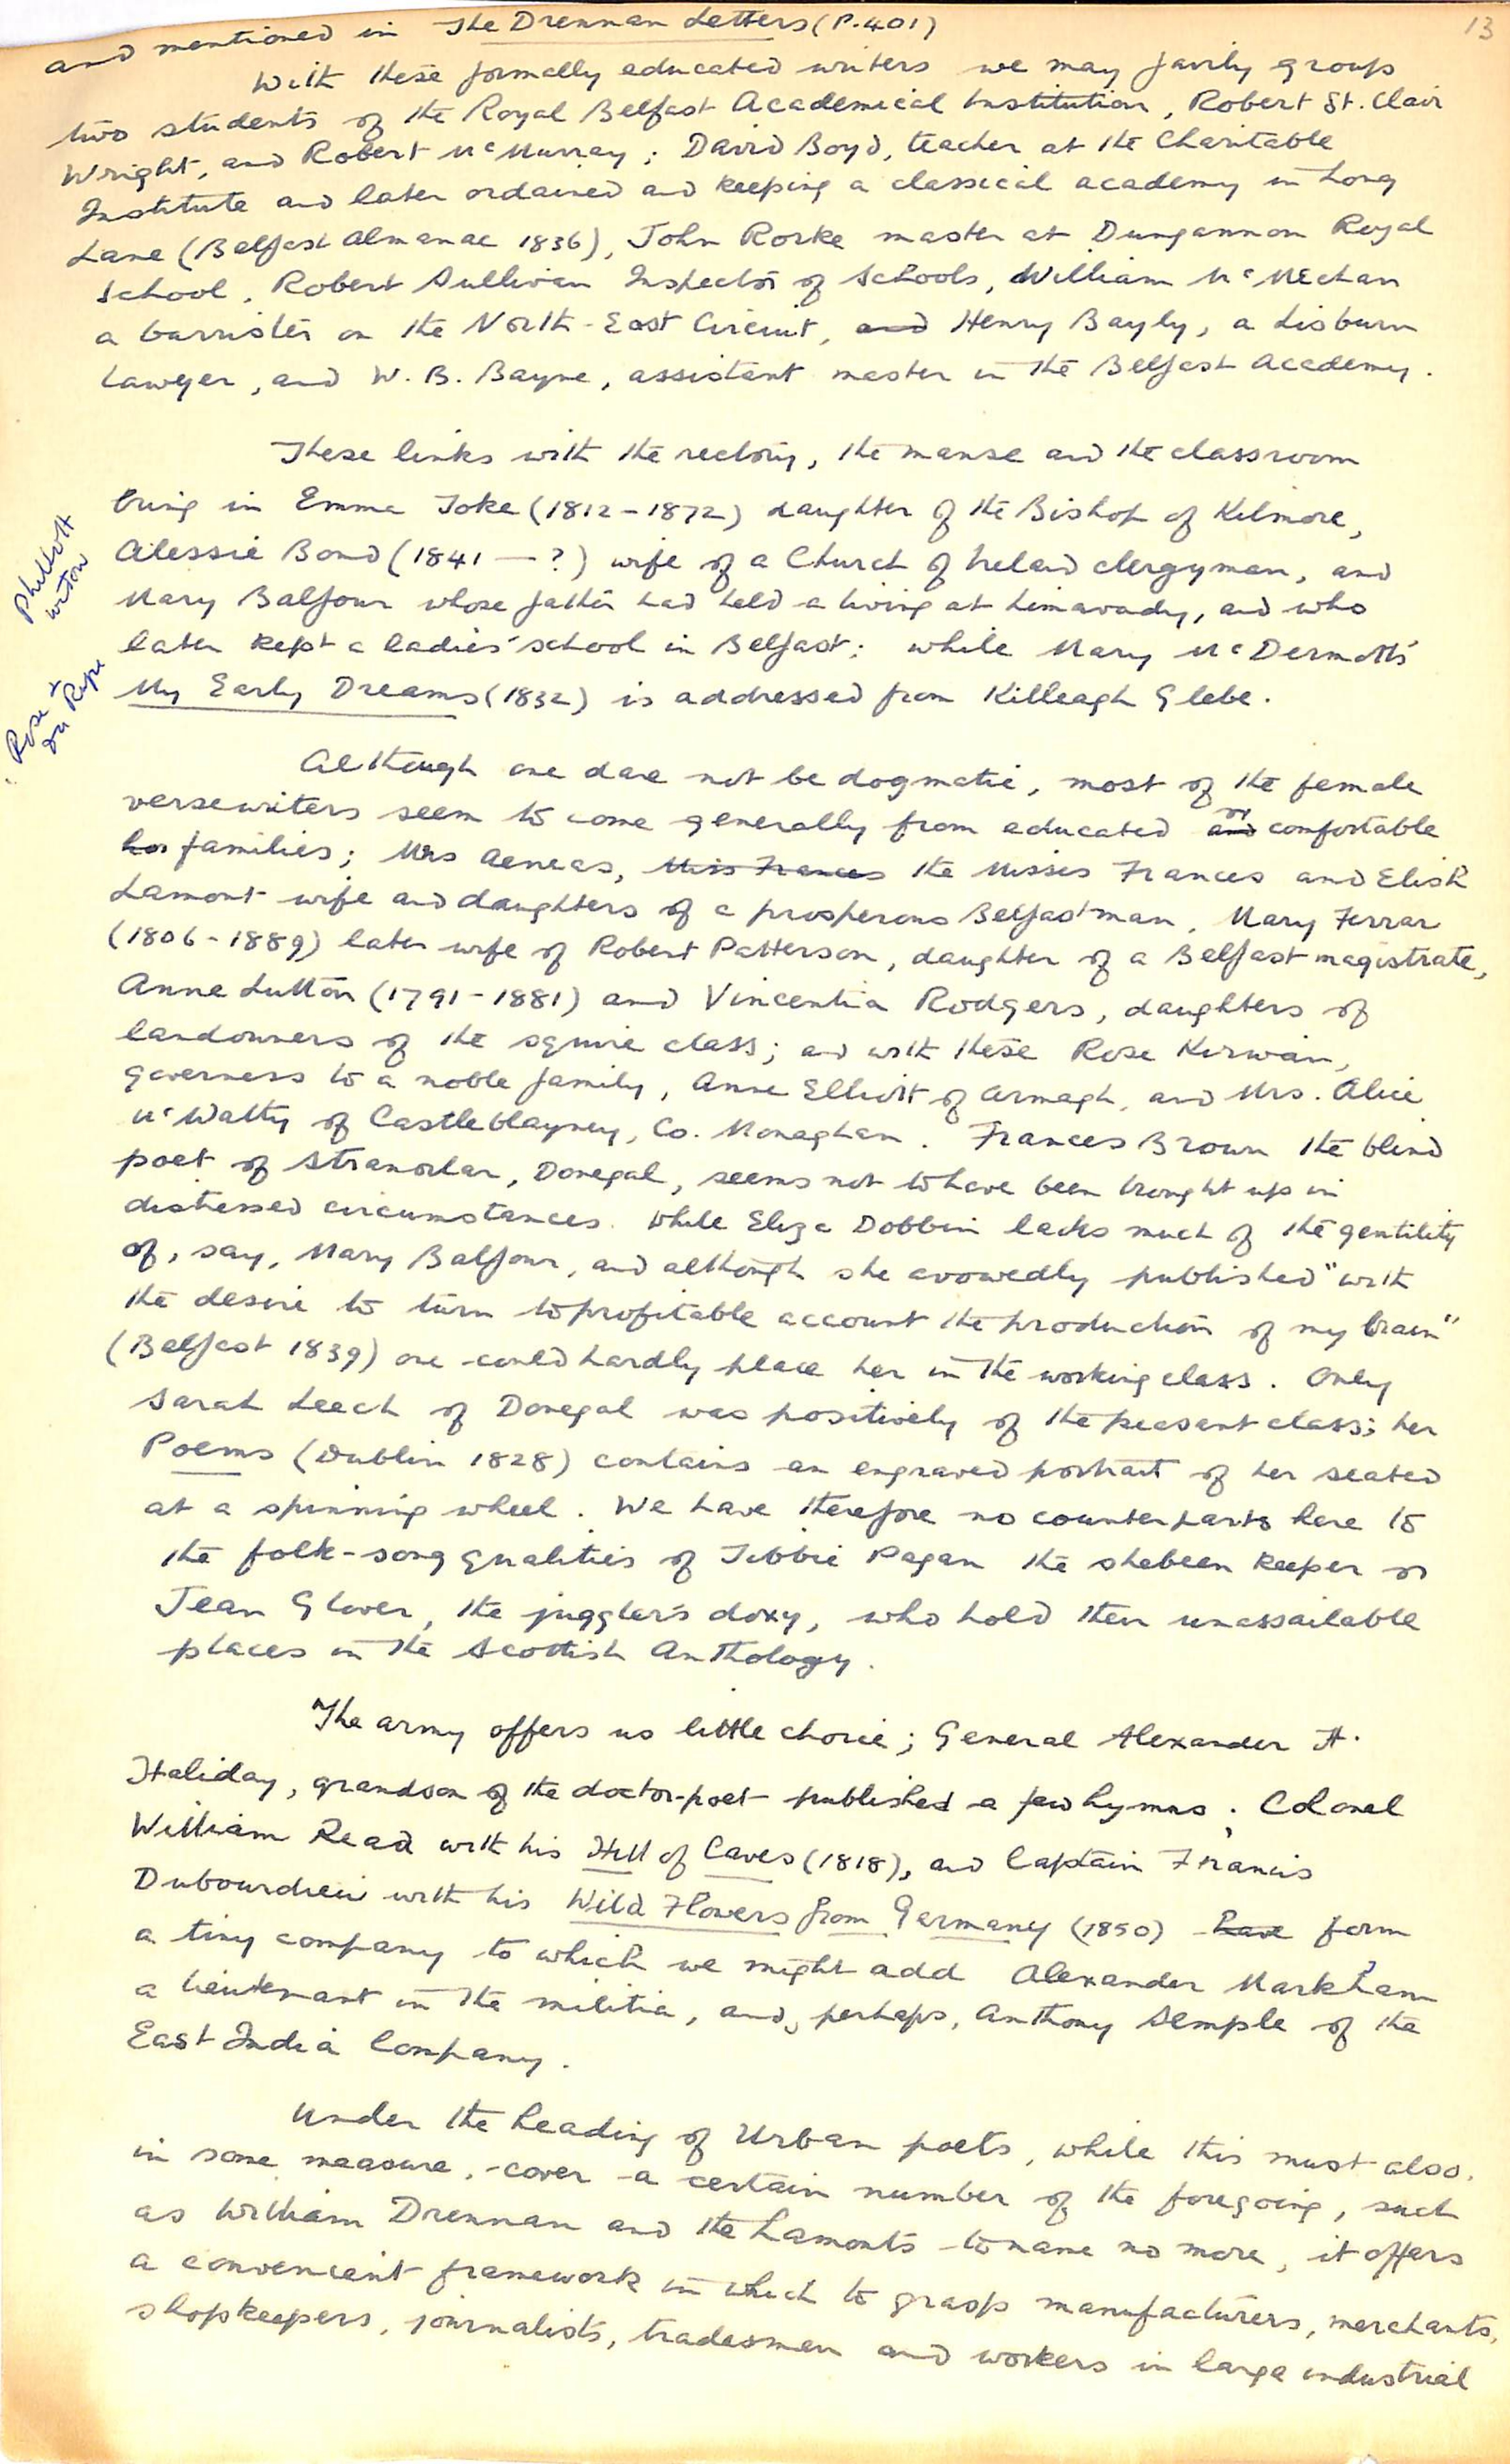 13
and mentioned in The Drennan Letters (P.401)
With these formally educated writers we may fairly group
two students of the Royal Belfast Academical Institution, Robert St. Clair
Wright, and Robert McMurray; David Boyd, teacher at the Charitable
Institute and later ordained and keeping a classical academy in Long
Lane (Belfast Almanac 1836), John Rorke master at Dungannon Royal
School, Robert Sullivan Inspector of Schools, William McMechan
a barrister on the North-East Circuit, and Henry Bayly, a Lisburn
Lawyer, and W. B. Bayne, assistant master in the Belfast Academy.
These links with the rectory, the manse and the classroom
bring in Emma Toke (1812-1872) daughter of the Bishop of Kilmore,
Alessie Bond (1841 — ?) wife of a Church of Ireland clergyman, and
Mary Balfour whose father had held a living at Limavady, and who
later kept a ladies' school in Belfast; while Mary McDermott's
My Early Dreams (1832) is addressed from Killeagh Glebe.
Although one dare not be dogmatic, most of the female
versewriters seem to come generally from educated and or comfortable
families; Mrs Aeneas, Miss Frances the Misses Frances and Elish
Lamont wife and daughters of a prosperous Belfastman, Mary Ferrar
(1806-1889) later wife of Robert Patterson, daughter of a Belfast magistrate,
Anne Lutton (1791-1881) and Vincentia Rodgers, daughters of
landowners of the squire class; and with these Rose Kirwan,
governess to a noble family, Anne Elliott of Armagh, and Mrs. Alice
McWatty of Castleblayney, Co. Monaghan. Frances Brown the blind
poet of Stranorlar, Donegal, seems not to have been brought up in
distressed circumstances. While Eliza Dobbin lacks much of the gentility
of, say, Mary Balfour, and although she avowedly published "with
the desire to turn to profitable account the production of my brain"
(Belfast 1839) one could hardly place her in the working class. Only
Sarah Leech of Donegal was positively of the peasant class; her
Poems (Dublin 1828) contains an engraved portrait of her seated
at a spinning wheel. We have therefore no counterparts here to
the folk-song qualities of Tibbie Pagan the shebeen keeper or
Jean Glover, the juggler's doxy, who hold their unassailable
places in the Scottish Anthology.
The army offers us little choice; General Alexander H.
Haliday, grandson of the doctor-poet published a few hymns; Colonel
William Read with his Hill of Caves (1818), and Captain Francis
Dubourdieu with his Wild Flowers from Germany (1850) have form
a tiny company to which we might add Alexander Markham
a lieutenant in the militia, and, perhaps, Anthony Semple of the
East India Company.
Under the heading of Urban poets, while this must also,
in some measure, cover a certain number of the foregoing, such
as William Drennan and the Lamonts to name no more, it offers
a convenient framework in which to grasp manufacturers, merchants,
shopkeepers, journalists, tradesmen and workers in large industrial